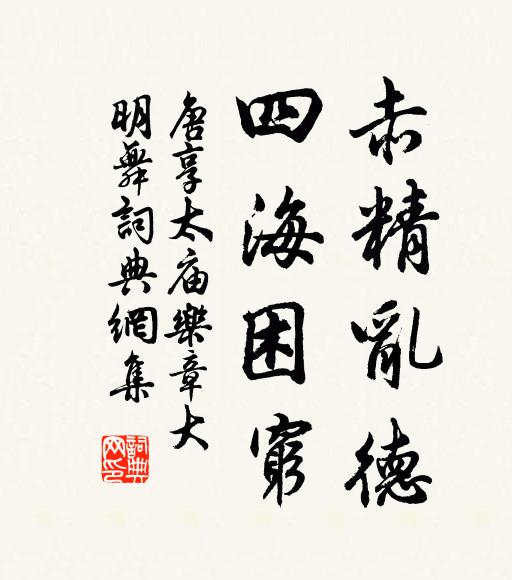 赤精亂德
四海困窮
唐享太庙樂章大
明舞詞典網集
詞典
网印